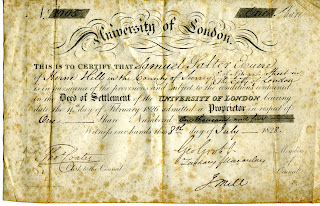 No. 1005 One Share
University of London.
THIS IS TO CERTIFY THAT Samuel
of Herne Hill in the County of Surrey
is in pursuance of the provisions and subject to the conditions contained
in the Deed of Settlement of the UNIVERSITY OF LONDON bearing
date the 11th day of February 1826 admitted a Proprietor in respect of
One Share Numbered One thousand and five
Witness our hands this 8th day of July 1828
Geo Grote Jr.
Zachary Macaulay
Clerk to the Council
J Mill